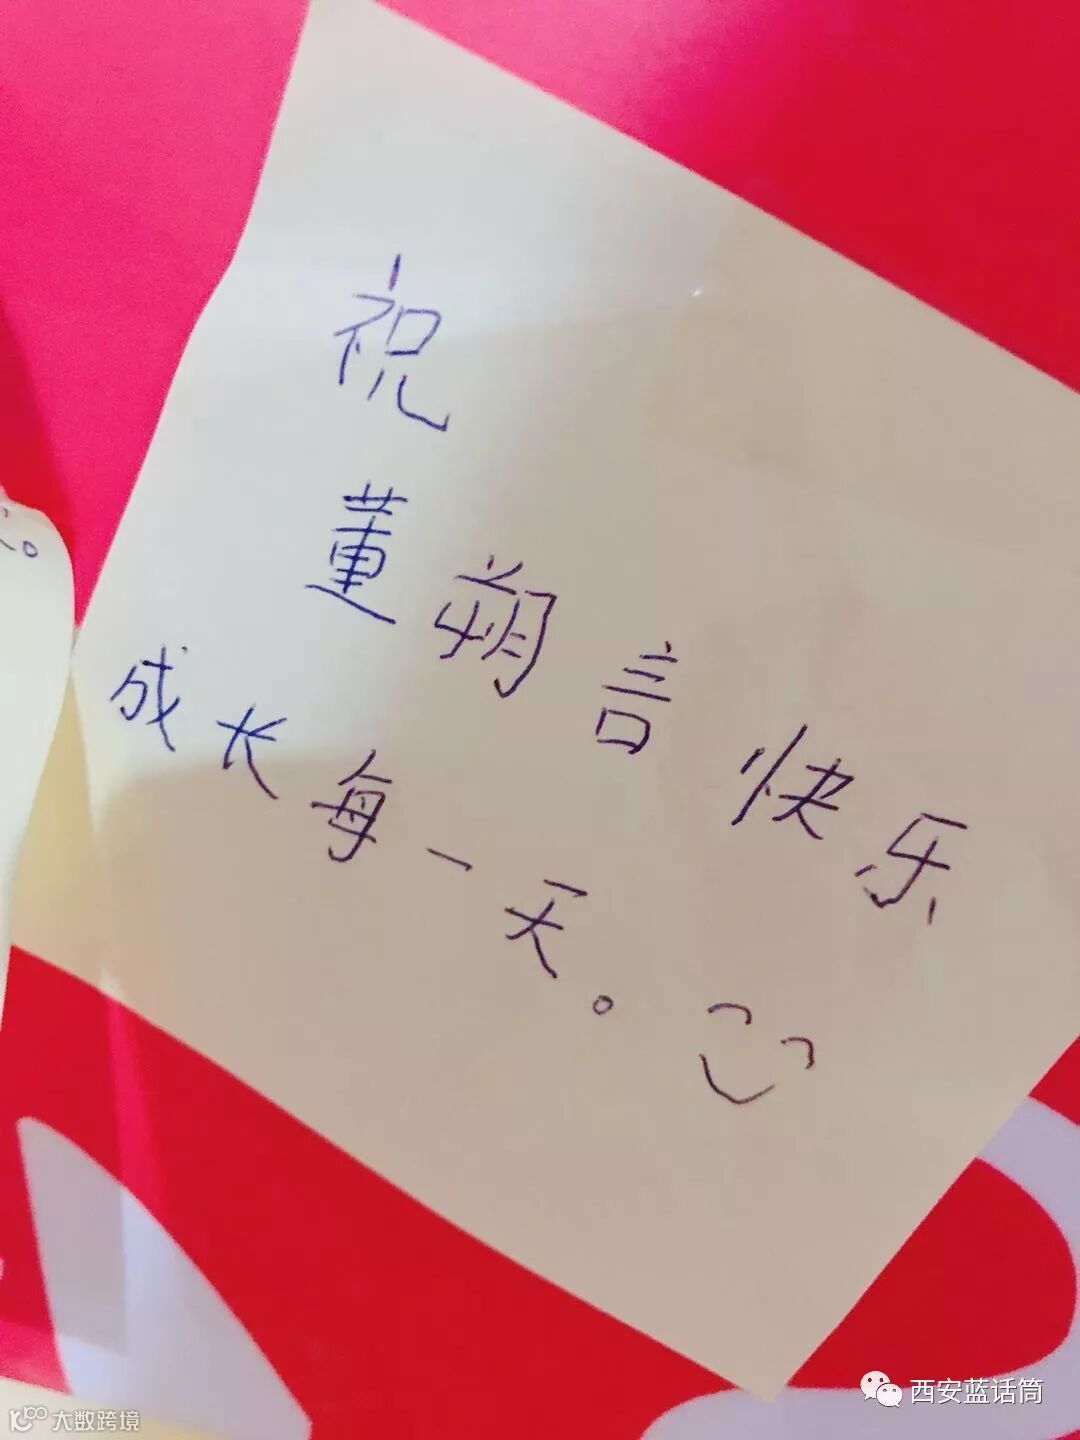 祝
董朔言快乐
成长每一天。
西安蓝话筒
大数跨境